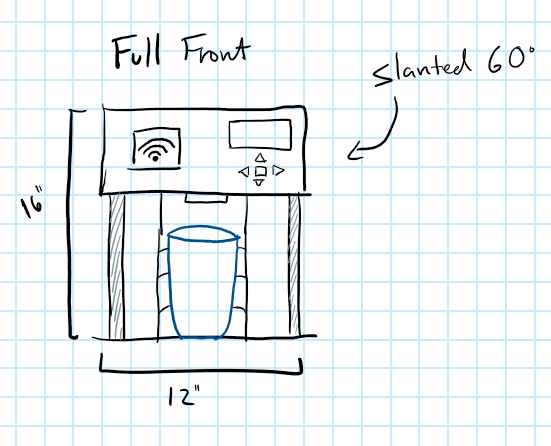 Full Front
Slanted 60°
16"
12"